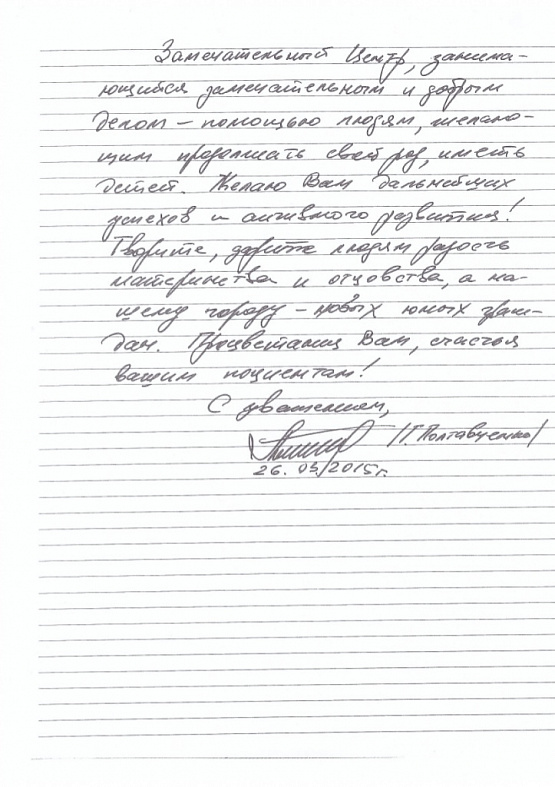 Замечательный Центр, занима-
ющийся замечательным и добрым
делом – помощью людям, желаю-
щим продолжать свой род, иметь
детей. Желаю Вам дальнейших
успехов и активного развития!
Творите, дарите людям радость
материнства и отцовства, а на-
шему городу – новых юных граж-
дан. Процветания Вам, счастья
вашим пациентам!
С уважением,
/Г. Полтавченко/
26.03/2015г.